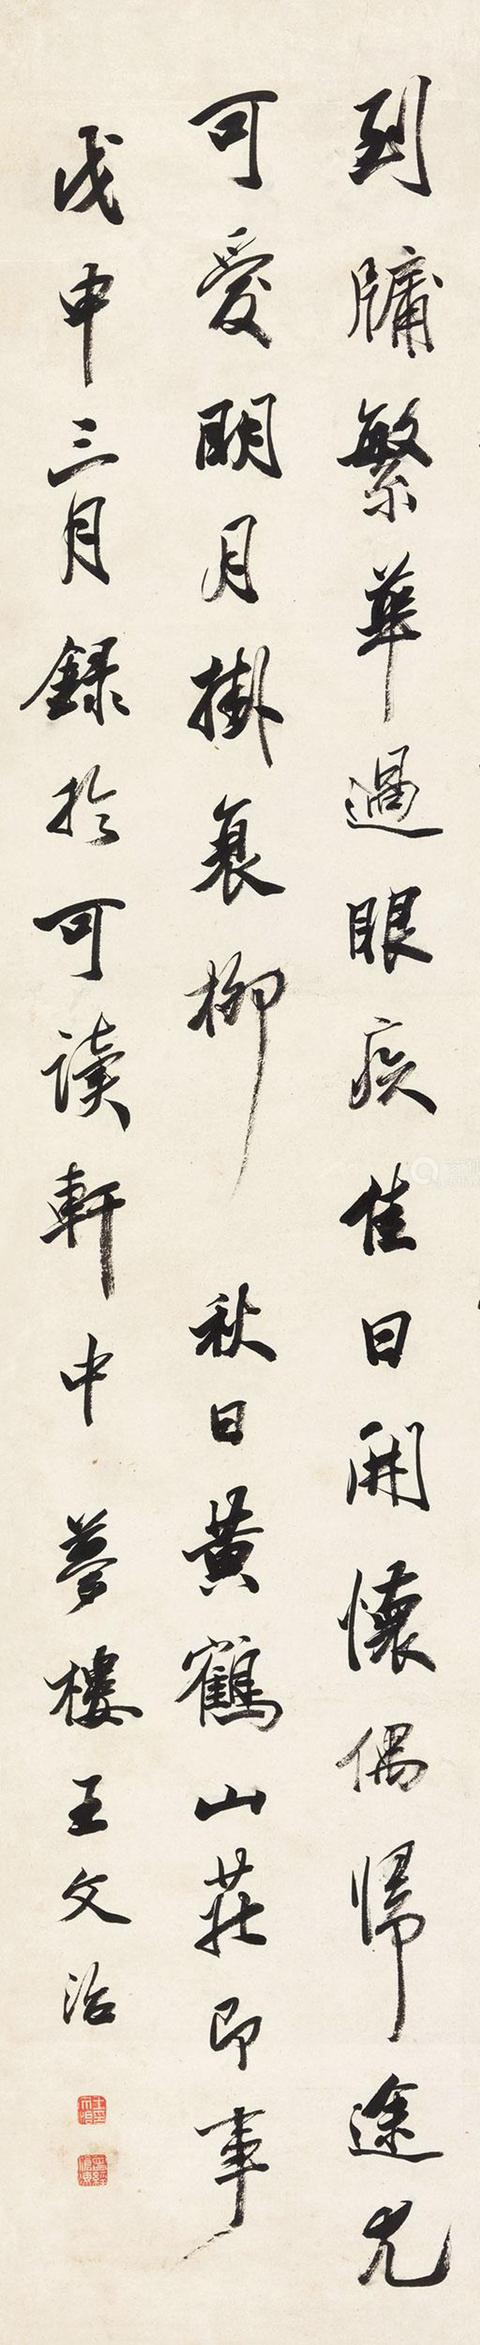 到牖繁華過眼疾佳日開懷偶歸途尤
可愛明月掛衰柳 秋日黃鶴山莊即事
戊申三月錄於可讀軒中 夢樓王文治